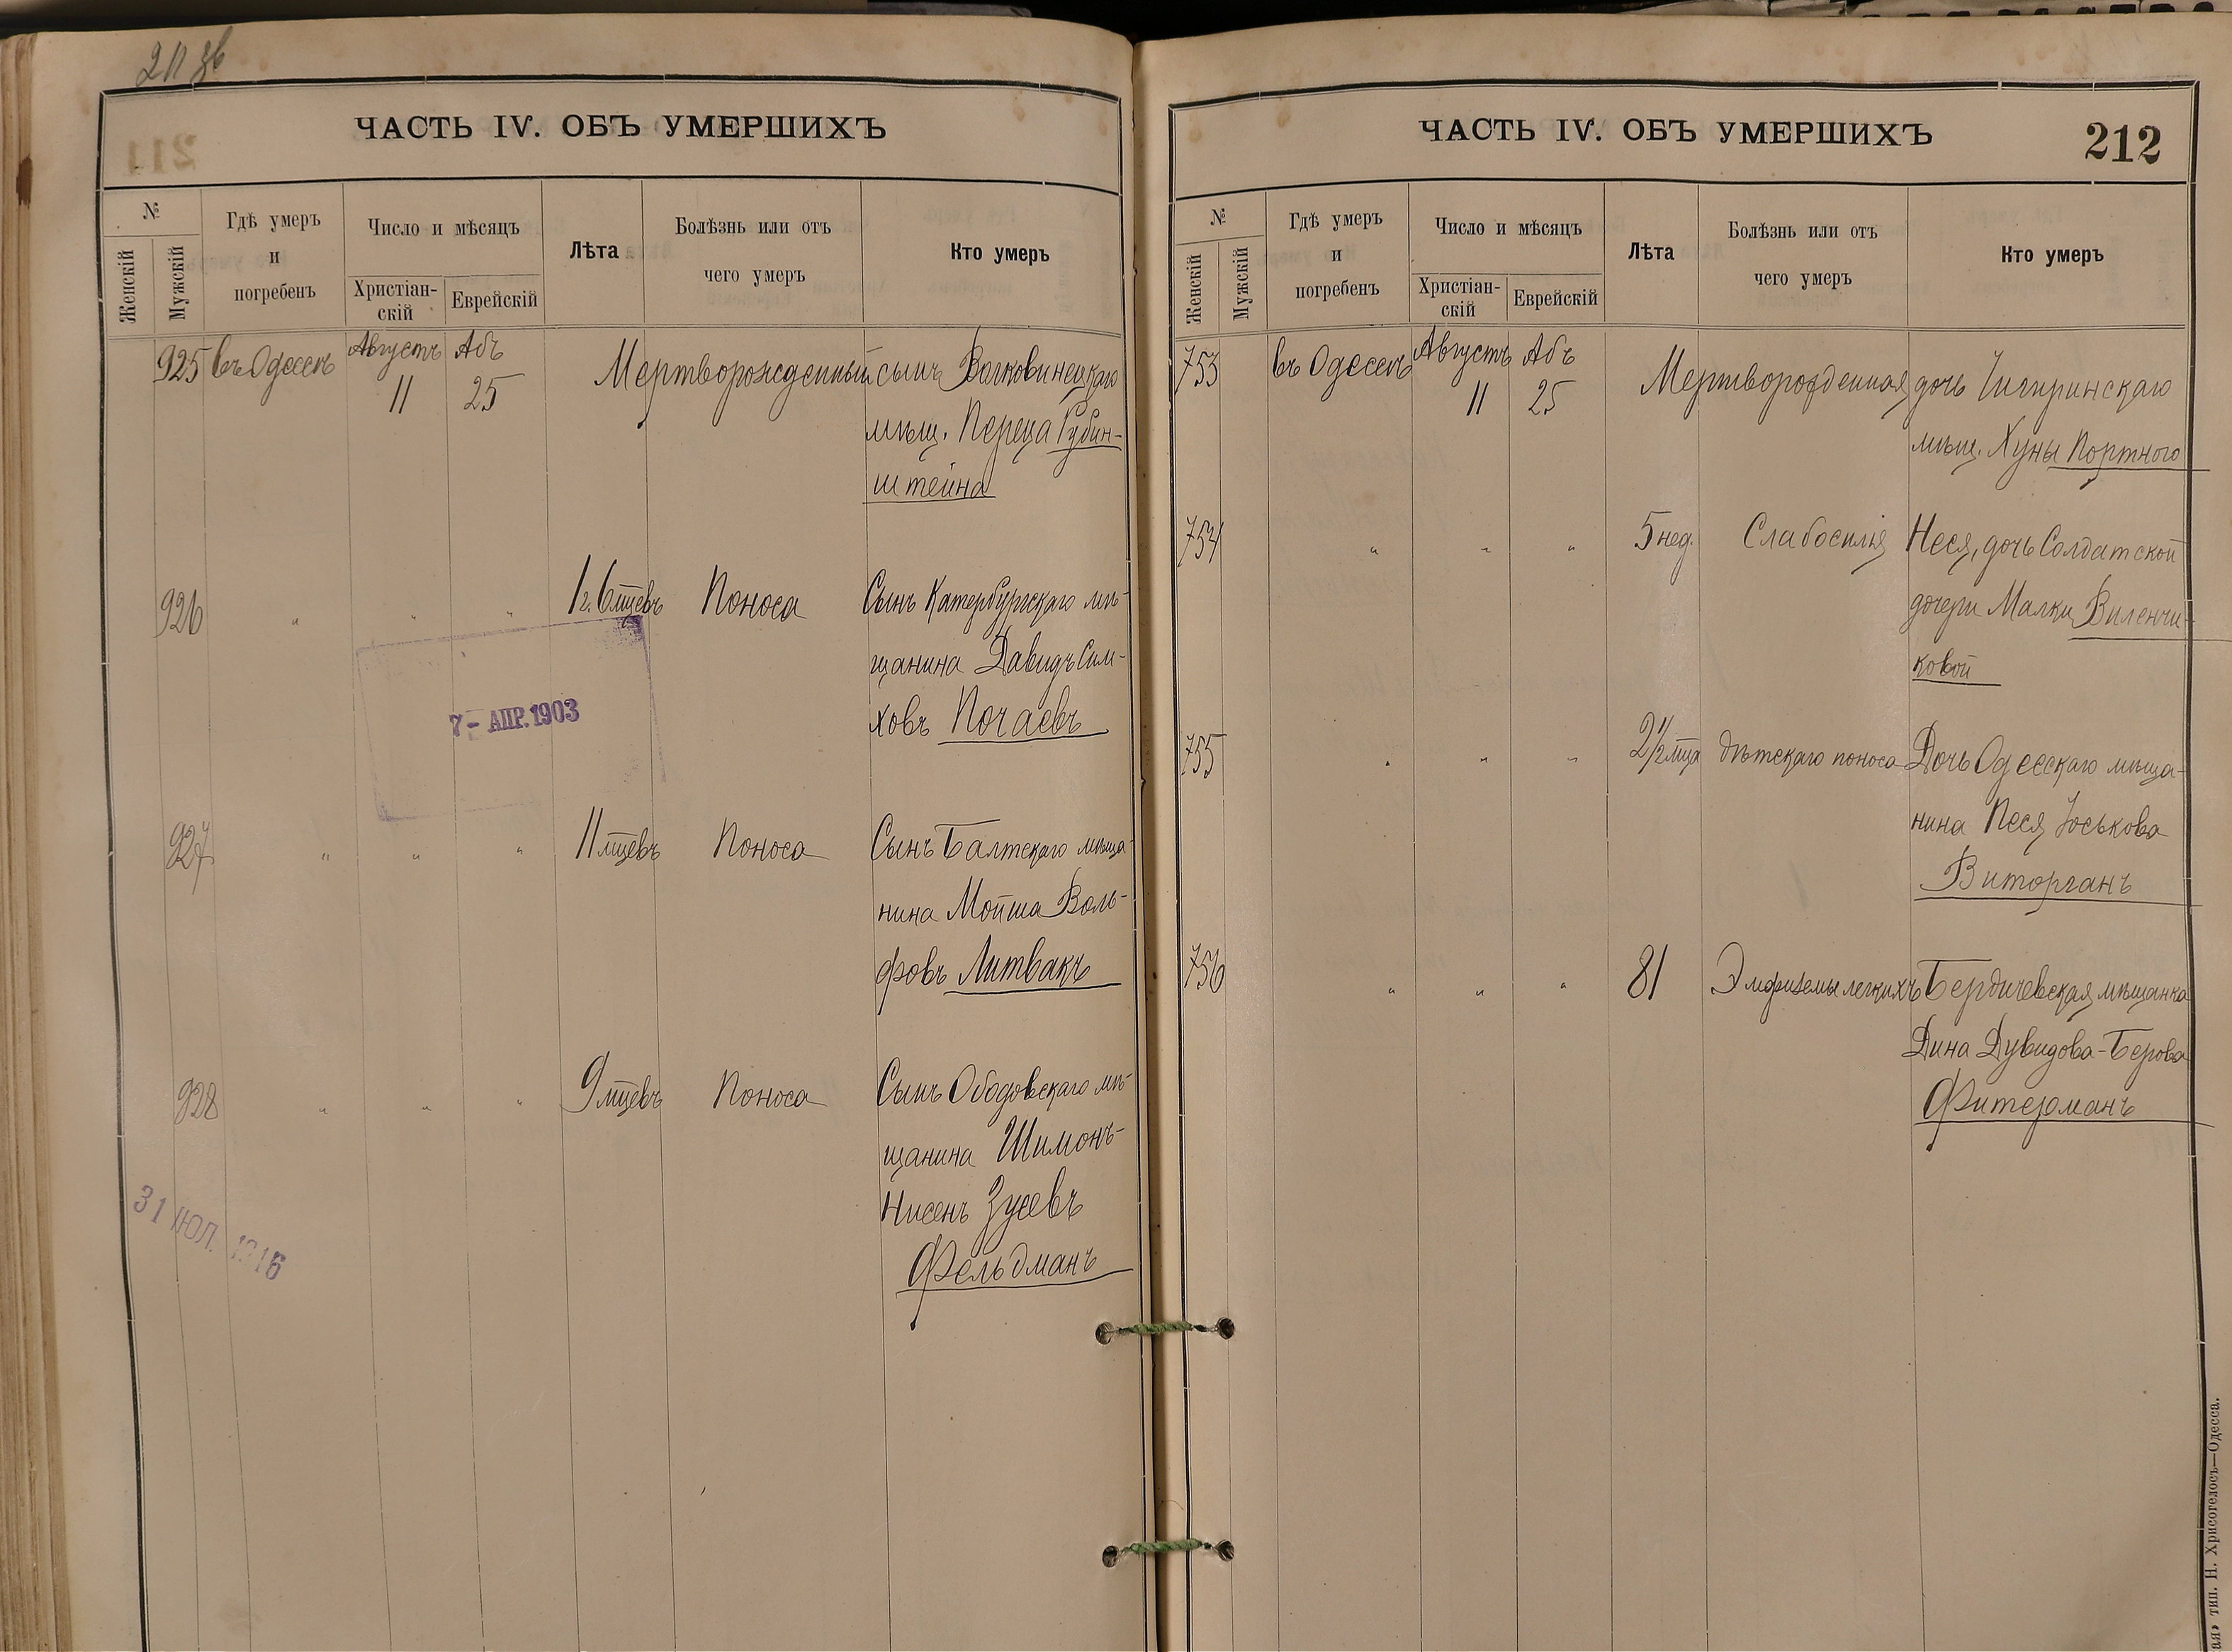 211 об
ЧАСТЬ IV. ОБЪ УМЕРШИХЪ
№
Женскій
Мужскій
Гдѣ умеръ
и
погребенъ
Число и мѣсяцъ
Христіан-
скій
Еврейскій
Лѣта
Болѣзнь или отъ
чего умеръ
Кто умеръ
925 въ Одессѣ Августъ 11 Абъ 25 Мертворожденный сынъ Волковинецкаго
мѣщ. Переца Рубин-
штейна
926 " " " 1 г. 6 мцевъ Поноса Сынъ Катербургскаго мѣ-
щанина Давидъ Сим-
ховъ Почаевъ
7 - АПР. 1903
927 " " " 11 мцевъ Поноса Сынъ Балтскаго мѣща-
нина Мойша Воль-
фовъ Литвакъ
928 " " " 9 мцевъ Поноса Сынъ Ободовскаго мѣ-
щанина Шимонъ-
Нисенъ Зусевъ
Фельдманъ
31 ІЮЛ. 1916
ЧАСТЬ IV. ОБЪ УМЕРШИХЪ
212
№
Женскій
Мужскій
Гдѣ умеръ
и
погребенъ
Число и мѣсяцъ
Христіан-
скій
Еврейскій
Лѣта
Болѣзнь или отъ
чего умеръ
Кто умеръ
753 въ Одессѣ Августъ 11 Абъ 25 Мертворожденная дочь Чигиринскаго
мѣщ. Хуны Портного
754 " " " 5 нед. Слабосилія Неся, дочь Солдатской
дочери Малки Виленчи-
ковой
755 " " " 2 1/2 мца дѣтскаго поноса Дочь Одесскаго мѣща-
нина Песя Іоськова
Виторганъ
756 " " " 81 Эмфиземы легкихъ Бердичевская мѣщанка
Дина Дувидова-Берова
Фитерманъ
тип. Н. Хрисогелосъ—Одесса.